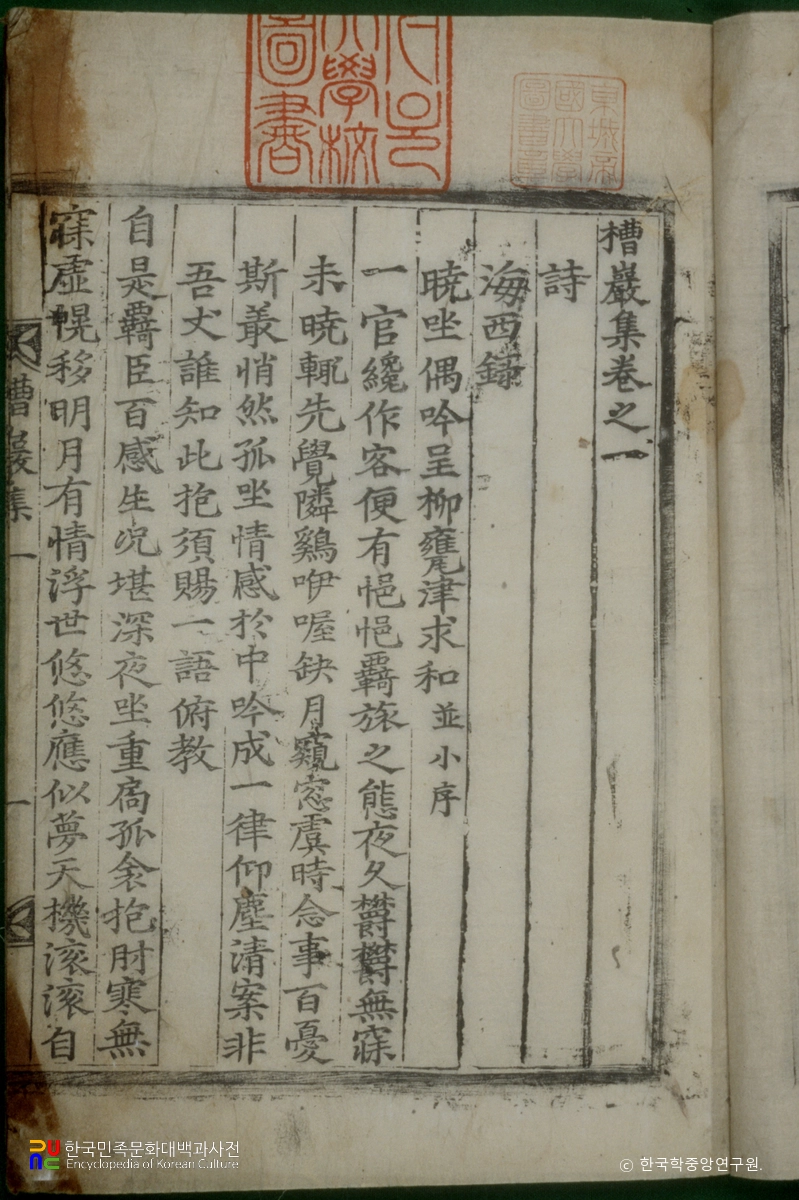 槽巖集卷之一
詩
海西錄
曉坐偶吟呈柳甕津求和 並小序
一官纔作客便有悒悒羇旅之態夜久欝欝無寐
未曉輒先覺隣鷄咿喔缺月窺窓虞時念事百憂
斯叢悄然孤坐情感於中吟成一律仰塵清案非
吾丈誰知此抱須賜一語俯教
自是羇臣百感生况堪深夜坐重扃孤衾抱肘寒無
寐虛幌移明月有情浮世悠悠應似夢天機滾滾自
槽巖集 一
一
大學校
圖書
東城帝
國大學
圖書章
한국민족문화대백과사전
Encyclopedia of Korean Culture
© 한국학중앙연구원.